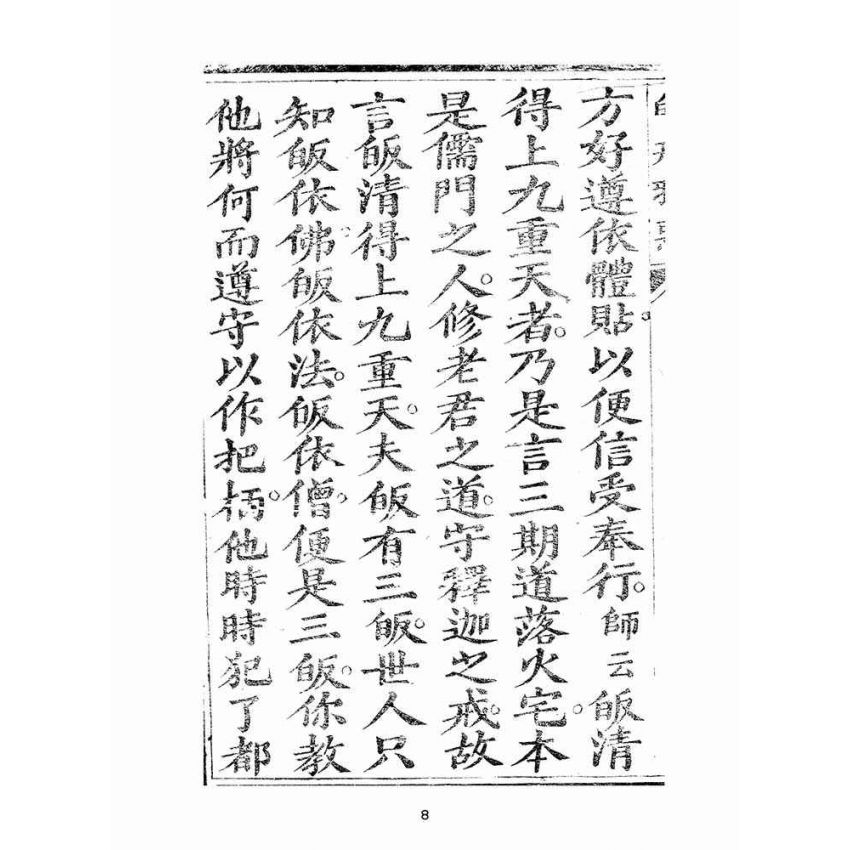 方好遵依體貼。以便信受奉行。師云皈清
得上九重天者。乃是言三期道落火宅。本
是儒門之人。修老君之道。守釋迦之戒。故
言皈清得上九重天。夫皈有三皈。世人只
知皈依佛。皈依法。皈依僧。便是三皈。你教
他將何而遵守以作把柄。他時時犯了都
8